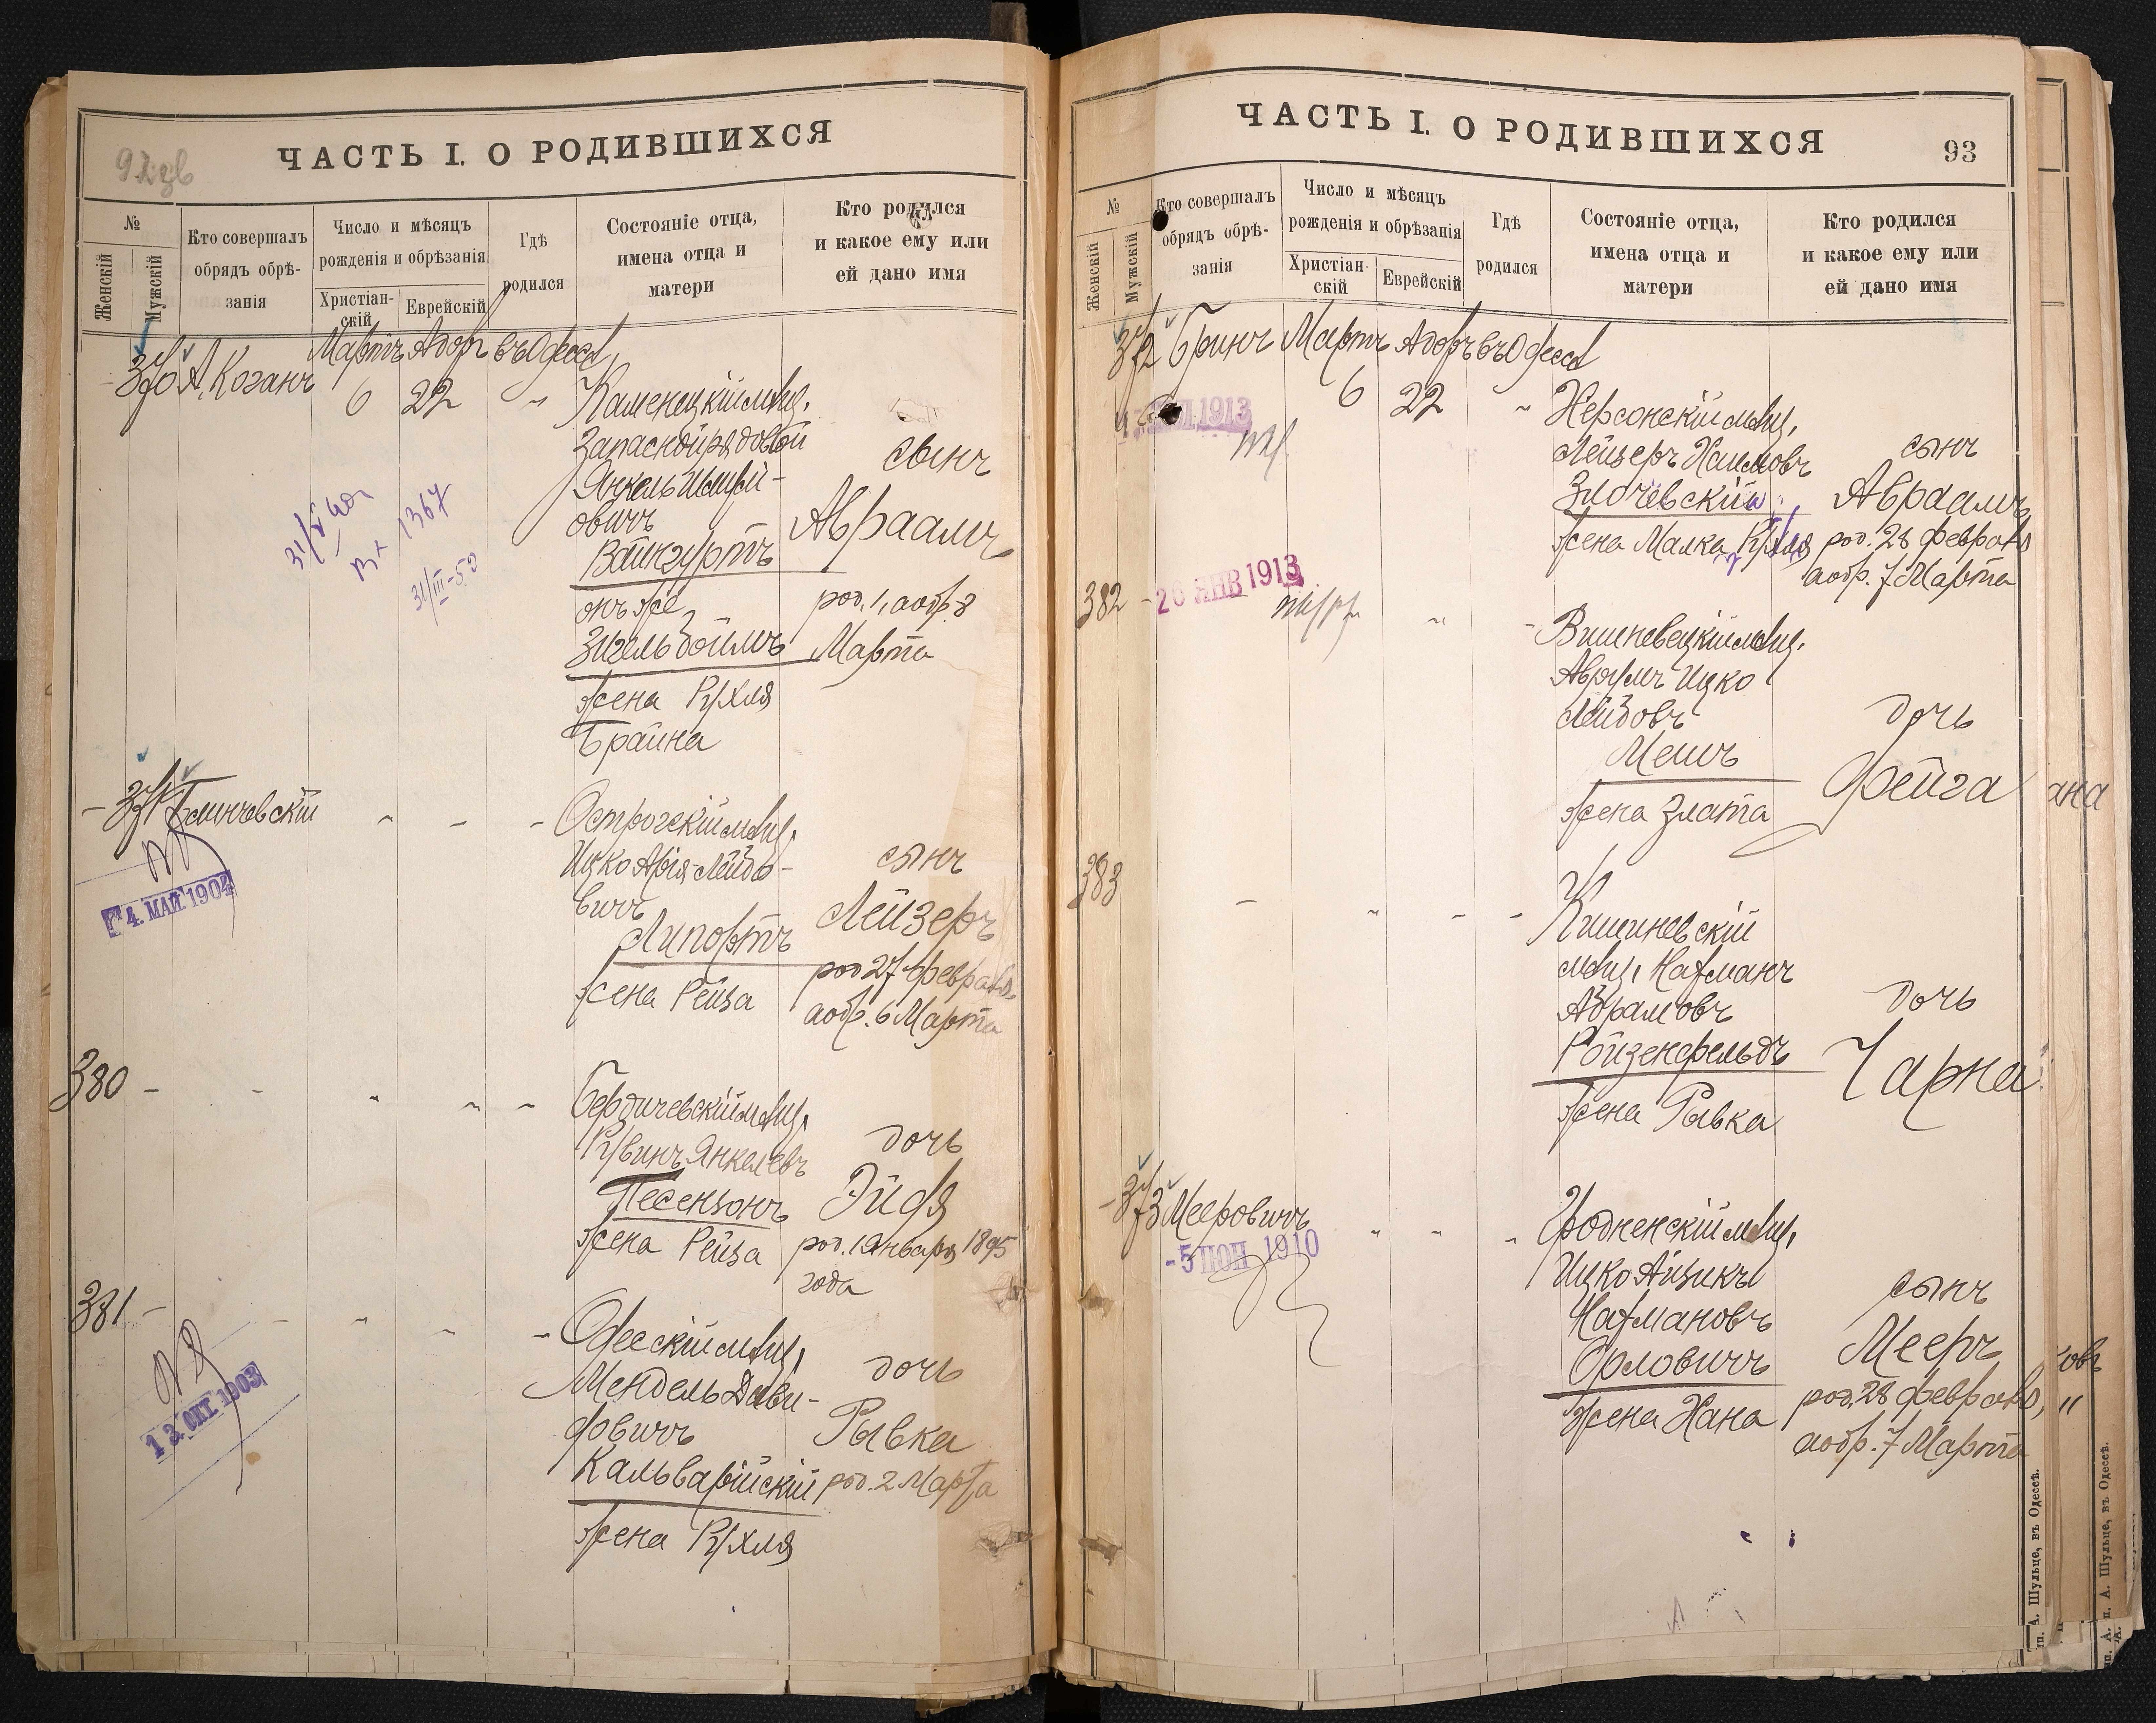 ЧАСТЬ I. О РОДИВШИХСЯ
№
Женскій
Мужскій
Кто совершалъ
обрядъ обрѣ-
занія
Число и мѣсяцъ
рожденія и обрѣзанія
Христіан-
скій
Еврейскій
Гдѣ
родился
Состояніе отца,
имена отца и
матери
Кто родился
и какое ему или
ей дано имя
370 А. Коганъ
Мартъ Адоръ въ Одессѣ
6 22 "
Каменецкій мѣщ.
Запасной рядовой
Янкель
овичъ
Вайнгуртъ
онъ же
Зигельбоймъ
жена Рухля
Брайна
сынъ
Авраамъ
род. 1, а обр. 8
Марта
31/III-50
1367
371 Глинчевскій
4. МАЙ 1904
Острогскій мѣщ.
Ицко Арія-Лейбо-
вичъ
Липортъ
жена Рейза
сынъ
Лейзеръ
род 27 февраля,
а обр. 6 Марта
380 -
Бердичевскій мѣщ.
Рувинъ Янкелевъ
Песензонъ
жена Рейза
дочь
Эйдя
род. 1 Января 1895
года
381 -
13 ОКТ. 1903
Одесскій мѣщ,
Мендель Дави-
довичъ
Кальварійскій
жена Рухля
дочь
Рывка
род. 2 Марта
ЧАСТЬ I. О РОДИВШИХСЯ
93
№
Женскій
Мужскій
Кто совершалъ
обрядъ обрѣ-
занія
Число и мѣсяцъ
рожденія и обрѣзанія
Христіан-
скій
Еврейскій
Гдѣ
родился
Состояніе отца,
имена отца и
матери
Кто родился
и какое ему или
ей дано имя
372 Бринъ Мартъ Адоръ въ Одессѣ
6 22 "
1913
Херсонскій мѣщ,
Лейзеръ Хаимовъ
Злочевскій
жена Малка Рухля
сынъ
Авраамъ
род. 28 февраля
а обр. 7 Марта
382 -
26 ЯНВ 1913
Вишневецкій мѣщ.
Аврумъ Ицко
Лейбовъ
Мешъ
жена Злата
дочь
Фейга
383
Кишиневскій
мѣщ, Нахманъ
Абрамовъ
Ройзенфельдъ
жена Рывка
дочь
Чарна
373 Мееровичъ
-5 1910
Гродненскій мѣщ,
Ицко Айзикъ
Нахмановъ
Орловичъ
жена Хана
сынъ
Мееръ
род. 28 февраля,
а обр. 7 Марта
А. Шульце, въ Одессѣ.
А. Шульце, въ Одессѣ.